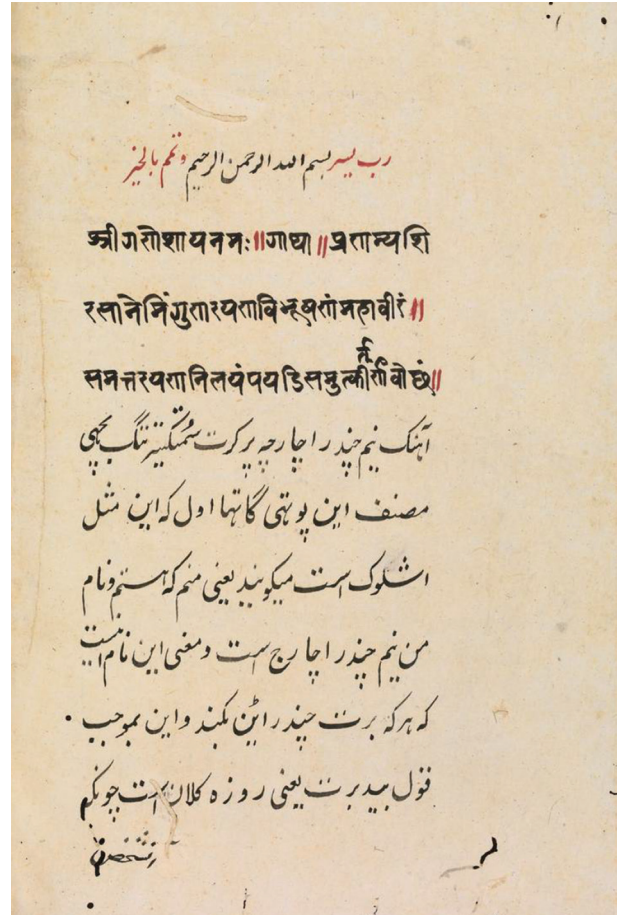 رب یسر بسم الله الرحمن الرحیم و تمم بالخیر
श्रीगणेशायनमः॥गाथा॥प्रणम्यशि
रसानेमिंगुणरयणविभूषणंमहावीरं॥
समत्तरयणनिलयंपयडिसमुत्कीर्त्तणंवोछं॥
آهنک نیم چندر اچارجه پرکرت
مصنف این پوتهی گاتها اول که این مثل
اشلوک است میکویند یعنی منم که هستم و نام
من نیم چندر اچارج است و معنی این نام اینست
که هر که برت چندراین بکند و این بموجب
قول بید برت یعنی روزه کلان است چونکه